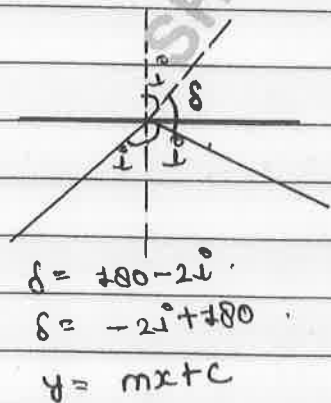 i
δ
i i
δ = 180 - 2i
δ = -2i + 180
y = mx + c